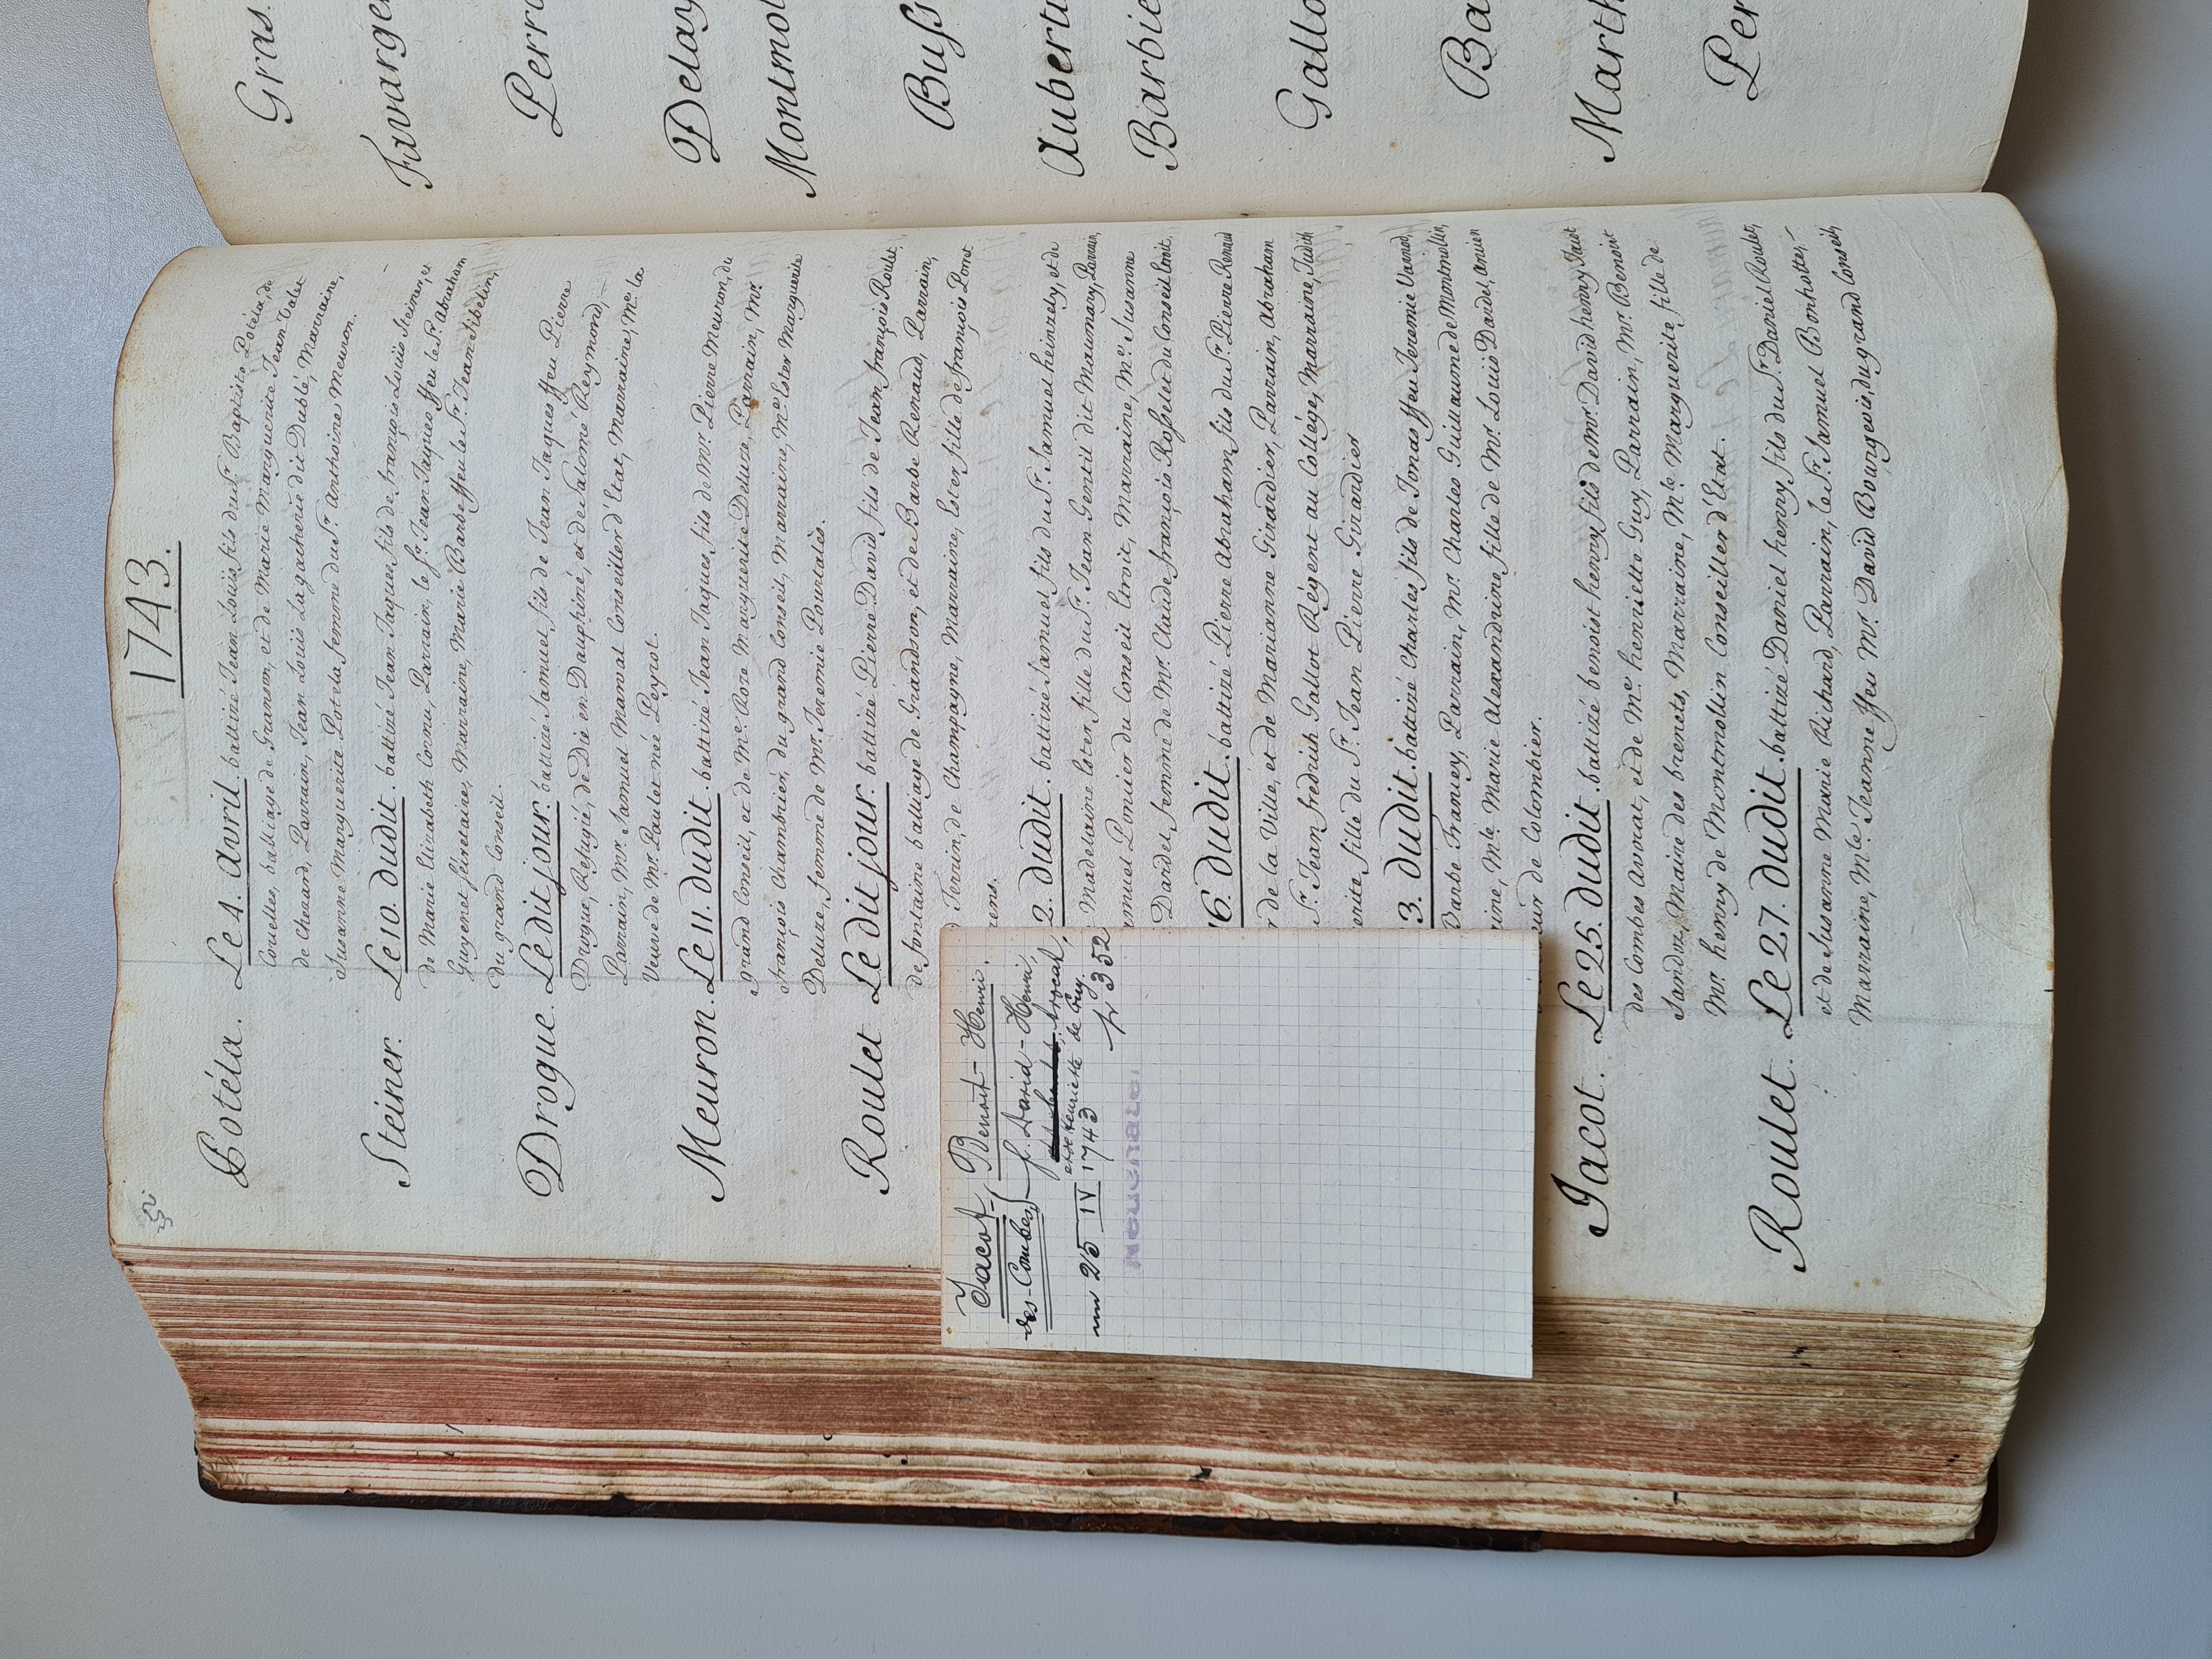 1743.
Potéla. Le 4. avril. battizé Jean Louïs fils du Sr. Baptiste Potéla, de
Couelles, balliage de Granson, et de Marie Marguerite Jean Valet
de Chezard, Parrain, Jean Louis Lagacherie dit Dublé, Marraine,
Susanne Marguerite Pot et la femme du Sr. Anthoine Meuron.
Steiner. Le 10. dudit. battizé Jean Jaques fils de françois Louïs Steiner, et
de Marie Elizabeth Cornu, Parrain, le Sr. Jean Jaques ffeu le Sr. Abraham
Guyenet féretaire, Marraine, Marie Barbe ffeu le Sr. Jean Sibelin,
du grand Conseil.
Drogue. Le dit jour. battizé Samuel, fils de Jean Jaques ffeu Pierre
Drogue, Refugié, de Dié en Dauphiné, et de Salomé Reymond,
Parrain, Mr. Samuel Marval Conseiller d'Etat, Marraine, Me. la
Veuve de Mr. Paulet née Peyrot.
Meuron. Le 11. dudit. battizé Jean Jaques, fils de Mr. Pierre Meuron, du
grand Conseil, et de Me. Roze Marguerite Deluze, Parrain, Mr.
françois Chambrier, du grand Conseil, Marraine, Me. Ester Marguerite
Deluze, femme de Mr. Jeremie Pourtalès.
Roulet Le dit jour. battizé Pierre David, fils de Jean françois Roulet,
de fontaine balliage de Grandson, et de Barbe Renaud, Parrain,
Terrin, de Champagne, Marraine, Ester fille de françois Porret
rens.
2. dudit. battizé Samuel fils du Sr. Samuel heinzely, et de
Madelaine Ester, fille du Sr. Jean Gentil dit Maumary, Parrain,
amuel Ponnier du Conseil Etroit, Marraine, Me. Susanne
Dardel, femme de Mr. Claude françois Rosselet du Conseil Etroit.
16. dudit. battizé Pierre Abraham, fils du Sr. Pierre Renaud
r de la Ville, et de Marianne Girardier, Parrain, Abraham
Sr. Jean fredrich Gallot Régent au Collége, Marraine, Judith
erite, fille du Sr. Jean Pierre Girardier
3. dudit. battizé Charles fils de Jonas ffeu Jeremie Varnod,
Barbe Franey, Parrain, Mr. Charles Guillaume de Montmollin,
aine, Mle. Marie Alexandrine fille de Mr. Louïs Dardel, ancien
eur de Colombier.
Jacot. Le 25. dudit. battizé benoist henry fils de Mr. David henry Jacot
des Combes Avocat, et de Me. henriette Guy, Parrain, Mr. Benoist
Sandoz, Maire des brenets, Marraine, Mle. Marguerite fille de
Mr. henry de Montmollin Conseiller d'Etat.
Roulet. Le 27. dudit. battizé Daniel henry fils du Sr. Daniel Roulet,
et de Susanne Marie Richard, Parrain, le Sr. Samuel Bonhotte,
Marraine, Mle. Jeanne ffeu Mr. David Bourgeois, du grand Conseil,
Jacot, Benoit-Henri.
des-Combes) f. David-Henri
avocat,
et de Henriette de Guy.
25 IV 1743
p 352
Neuchâtel
Gras.
Favarge
Perro
Delay
Montmol
Buss
Auberti
Barbie
Gallo
Ba
Marth
Per